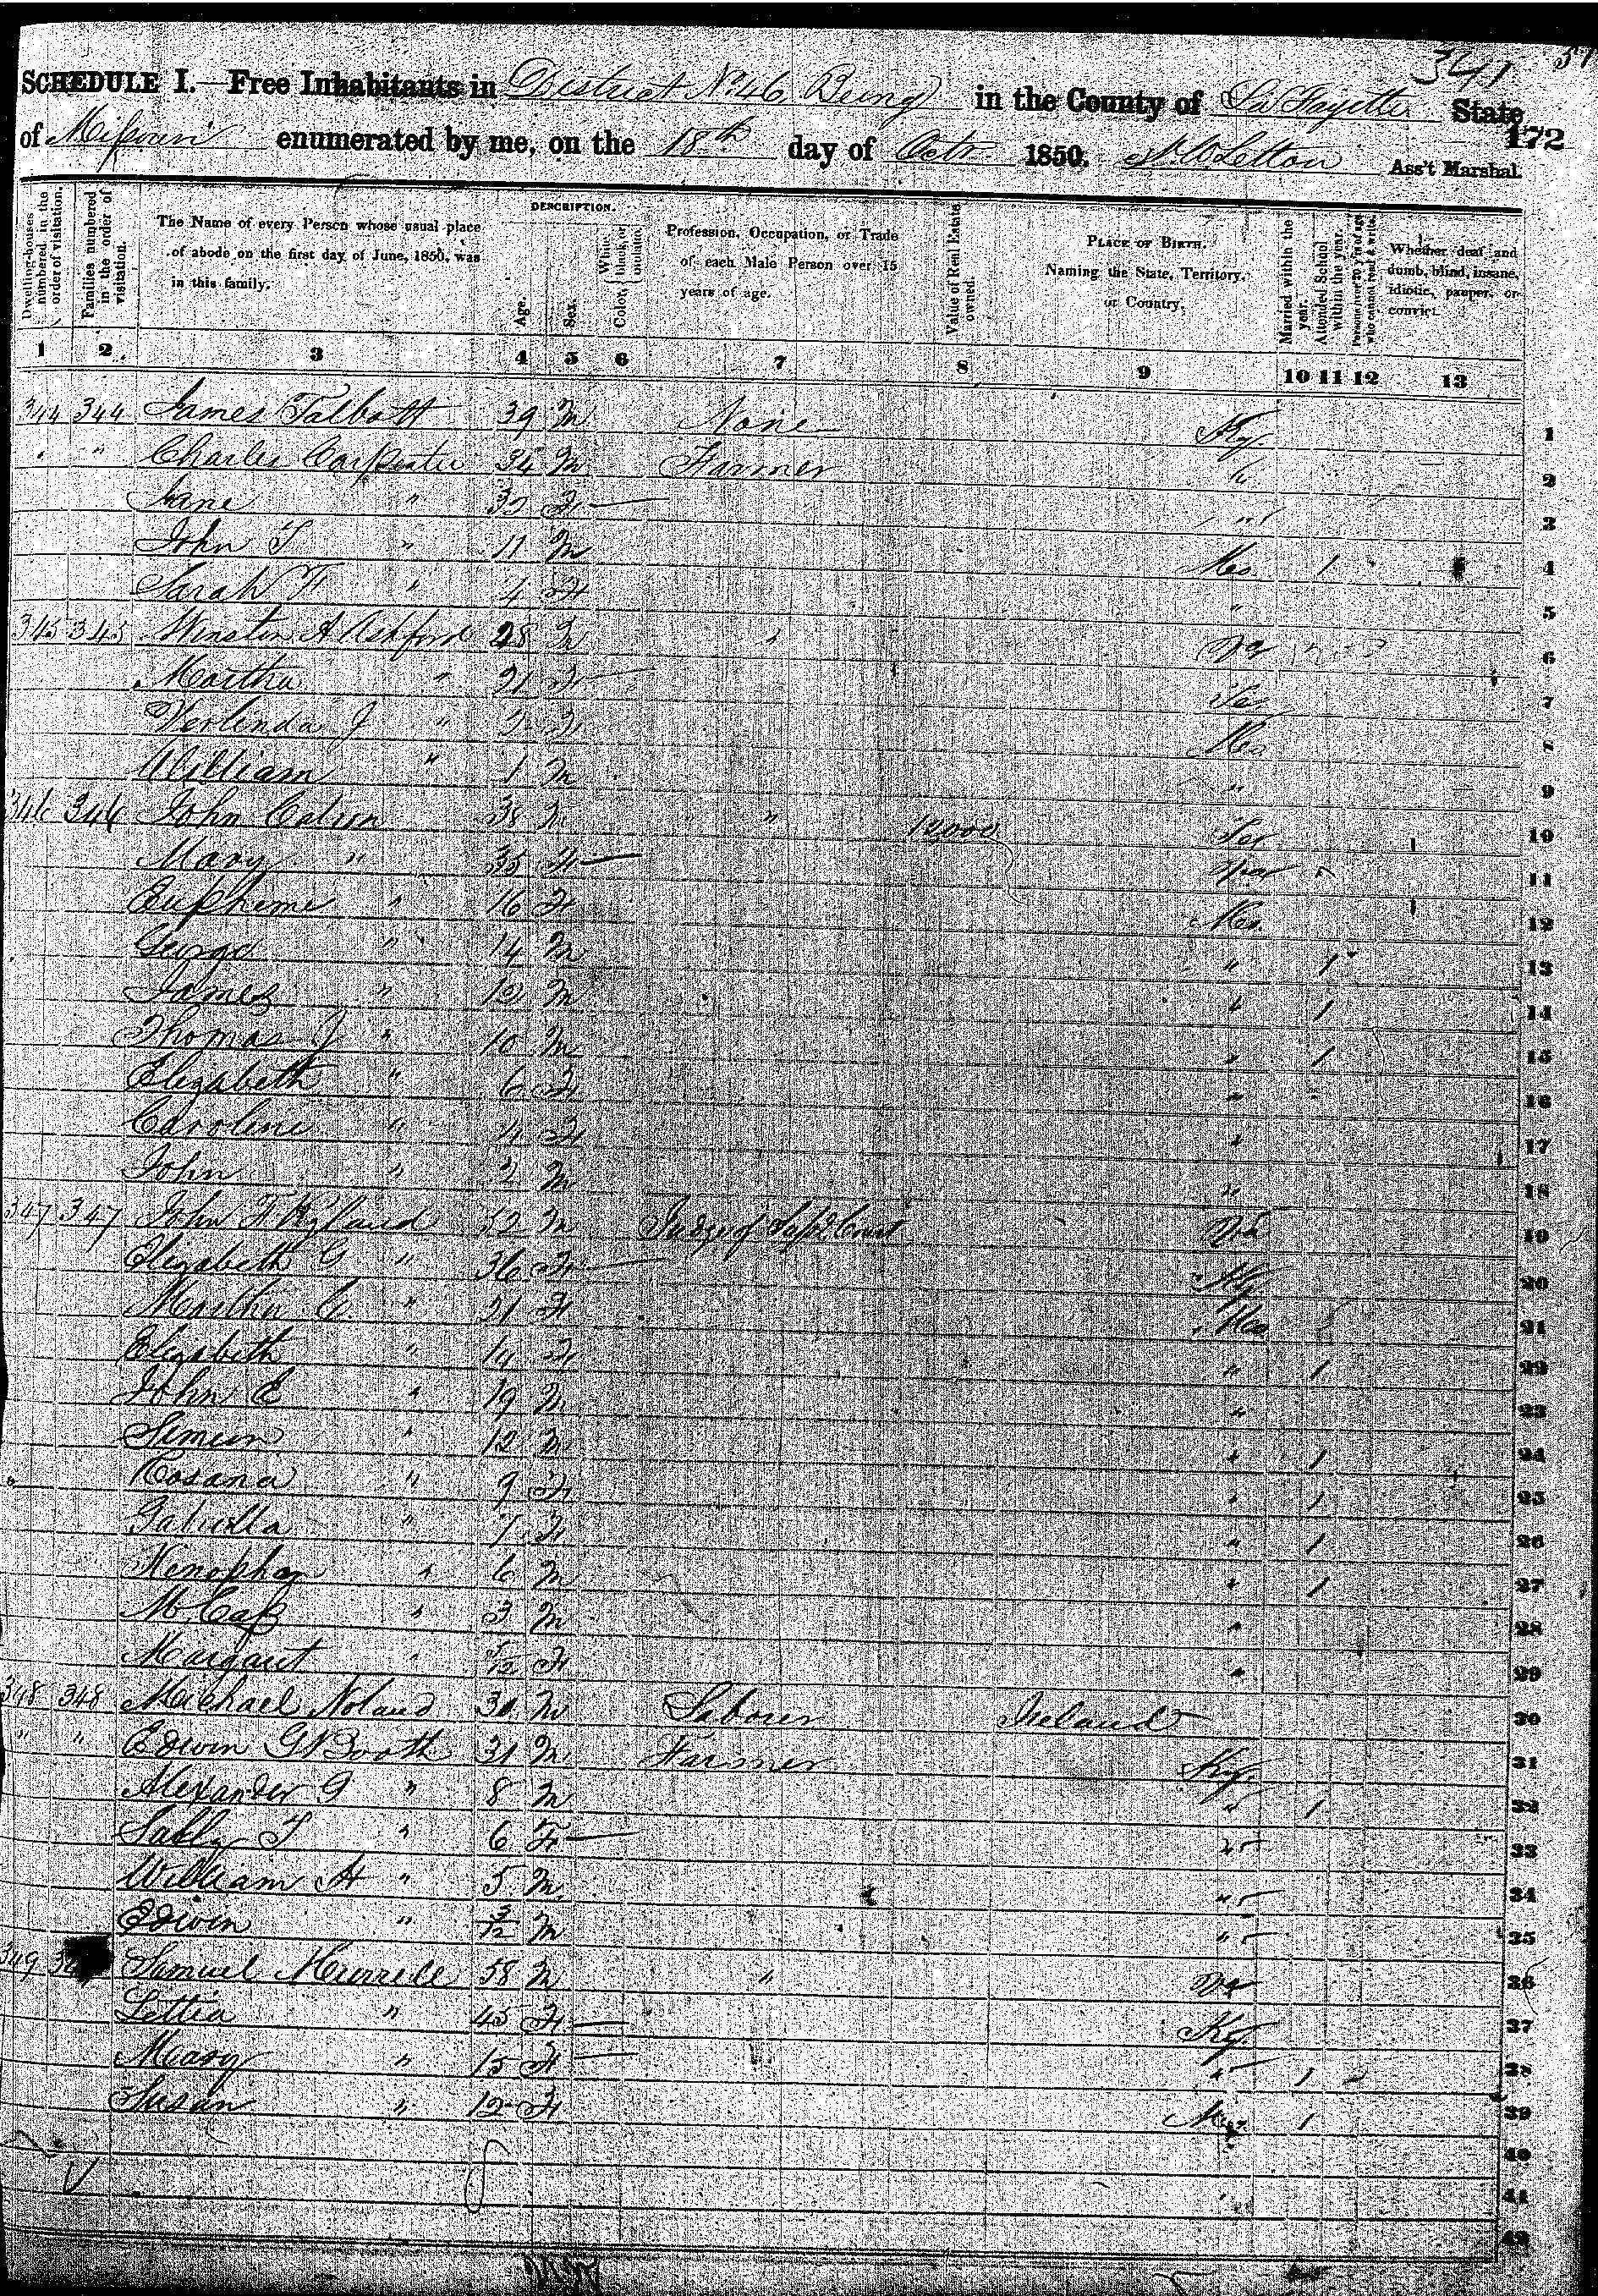 341
SCHEDULE I.—Free Inhabitants in District No 46 Being in the County of La Fayette State
172
of Missouri enumerated by me, on the 18th day of Octr 1850. Ass't Marshal.
Dwelling-houses numbered in the order of visitation.
Families numbered in the order of visitation.
The Name of every Person whose usual place of abode on the first day of June, 1850, was in this family.
DESCRIPTION.
Age.
Sex.
Color, White, black, or mulatto.
Profession, Occupation, or Trade of each Male Person over 15 years of age.
Value of Real Estate owned.
PLACE OF BIRTH. Naming the State, Territory, or Country.
Married within the year.
Attended School within the year.
Persons over 20 y'rs of age who cannot read & write.
Whether deaf and dumb, blind, insane, idiotic, pauper, or convict.
1 2 3 4 5 6 7 8 9 10 11 12 13
344 344 James Talbott 39 M None Ky 1
" " Charles Carpenter 34 M Farmer " 2
Jane " 32 F " 3
John T " 11 M Mo 1 4
Sarah F " 4 F " 5
345 345 Winston A Ashford 28 M " Va 6
Martha " 21 F 7
Verlinda J " 2 F Mo 8
William " 1 M " 9
346 346 John Catron 38 M " 12000 Ten 10
Mary " 35 F 11
Eupheme " 16 F Mo 12
George " 14 M " 1 13
James " 12 M " 1 14
Thomas J " 10 M " 1 15
Elizabeth " 6 F " 16
Caroline " 4 F " 17
John " 2 M " 18
347 347 John F Ryland 52 M Judge of Supe Court Va 19
Elizabeth G " 36 F Ky 20
Martha C " 21 F Mo 21
Elizabeth " 14 F " 1 22
John E " 19 M " 23
Simeon " 12 M " 1 24
Rosana " 9 F " 1 25
" 7 F " 1 26
Xenophon " 6 M " 1 27
M Cass " 3 M " 28
Margaret " 5/12 F " 29
348 348 Michael Noland 30 M Laborer Ireland 30
" " Edwin G Booth 31 M Farmer Ky 31
Alexander G " 8 M " 1 32
Sally T " 6 F " 33
William H " 5 M " 34
Edwin " 3/12 M " 35
349 Samuel Murrell 58 M " Va 36
Lettia " 45 F Ky 37
Mary " 15 F " 1 38
Susan " 12 F Mo 1 39
40
41
42